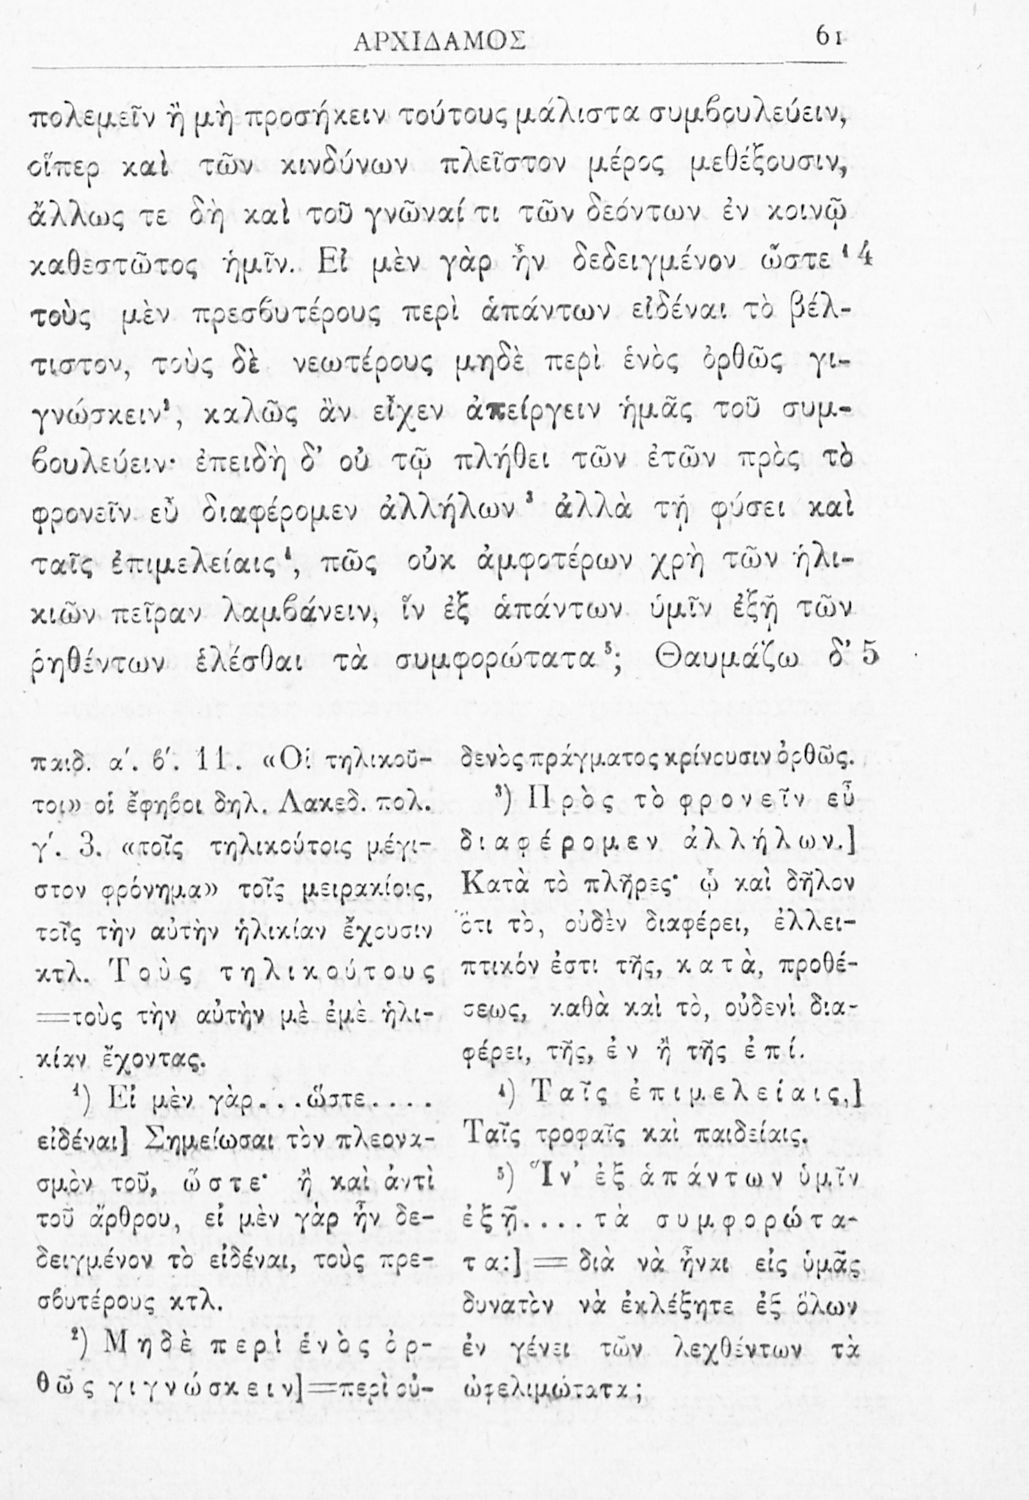 ΑΡΧΙΔΑΜΟΣ 61
πολεμεῖν ἢ μὴ προσήκειν τούτους μάλιστα συμβουλεύειν,
οἵπερ καὶ τῶν κινδύνων πλεῖστον μέρος μεθέξουσιν,
ἄλλως τε δὴ καὶ τοῦ γνῶναί τι τῶν δεόντων ἐν κοινῷ
καθεστῶτος ἡμῖν. Εἰ μὲν γὰρ ἦν δεδειγμένον ὥστε ¹ 4
τοὺς μὲν πρεσβυτέρους περὶ ἁπάντων εἰδέναι τὸ βέλ-
τιστον, τοὺς δὲ νεωτέρους μηδὲ περὶ ἑνὸς ὀρθῶς γι-
γνώσκειν², καλῶς ἂν εἶχεν ἀπείργειν ἡμᾶς τοῦ συμ-
βουλεύειν· ἐπειδὴ δ' οὐ τῷ πλήθει τῶν ἐτῶν πρὸς τὸ
φρονεῖν εὖ διαφέρομεν ἀλλήλων ³ ἀλλὰ τῇ φύσει καὶ
ταῖς ἐπιμελείαις ⁴, πῶς οὐκ ἀμφοτέρων χρὴ τῶν ἡλι-
κιῶν πεῖραν λαμβάνειν, ἵν ἐξ ἁπάντων ὑμῖν ἐξῇ τῶν
ῥηθέντων ἑλέσθαι τὰ συμφορώτατα ⁵; Θαυμάζω δ' 5
παιδ. α΄. β΄. 11. «Οἱ τηλικοῦ-
τοι» οἱ ἔφηβοι δηλ. Λακεδ. πολ.
γ΄. 3. «τοῖς τηλικούτοις μέγι-
στον φρόνημα» τοῖς μειρακίοις,
τοῖς τὴν αὐτὴν ἡλικίαν ἔχουσιν
κτλ. Τοὺς τηλικούτους
=τοὺς τὴν αὐτὴν μὲ ἐμὲ ἡλι-
κίαν ἔχοντας.
¹) Εἰ μὲν γὰρ...ὥστε....
εἰδέναι] Σημείωσαι τὸν πλεονα-
σμὸν τοῦ, ὥστε· ἢ καὶ ἀντὶ
τοῦ ἄρθρου, εἰ μὲν γὰρ ἦν δε-
δειγμένον τὸ εἰδέναι, τοὺς πρε-
σβυτέρους κτλ.
²) Μηδὲ περὶ ἑνὸς ὀρ-
θῶς γιγνώσκειν]=περὶ οὐ-
δενὸς πράγματος κρίνουσιν ὀρθῶς.
³) Πρὸς τὸ φρονεῖν εὖ
διαφέρομεν ἀλλήλων.]
Κατὰ τὸ πλῆρες· ᾧ καὶ δῆλον
ὅτι τὸ, οὐδὲν διαφέρει, ἐλλει-
πτικόν ἐστι τῆς, κατὰ, προθέ-
σεως, καθὰ καὶ τὸ, οὐδενὶ δια-
φέρει, τῆς, ἐν ἢ τῆς ἐπί.
⁴) Ταῖς ἐπιμελείαις,]
Ταῖς τροφαῖς καὶ παιδείαις.
⁵) Ἵν' ἐξ ἁπάντων ὑμῖν
ἐξῇ....τὰ συμφορώτα-
τα:] = διὰ νὰ ἦναι εἰς ὑμᾶς
δυνατὸν νὰ ἐκλέξητε ἐξ ὅλων
ἐν γένει τῶν λεχθέντων τὰ
ὠφελιμώτατα;